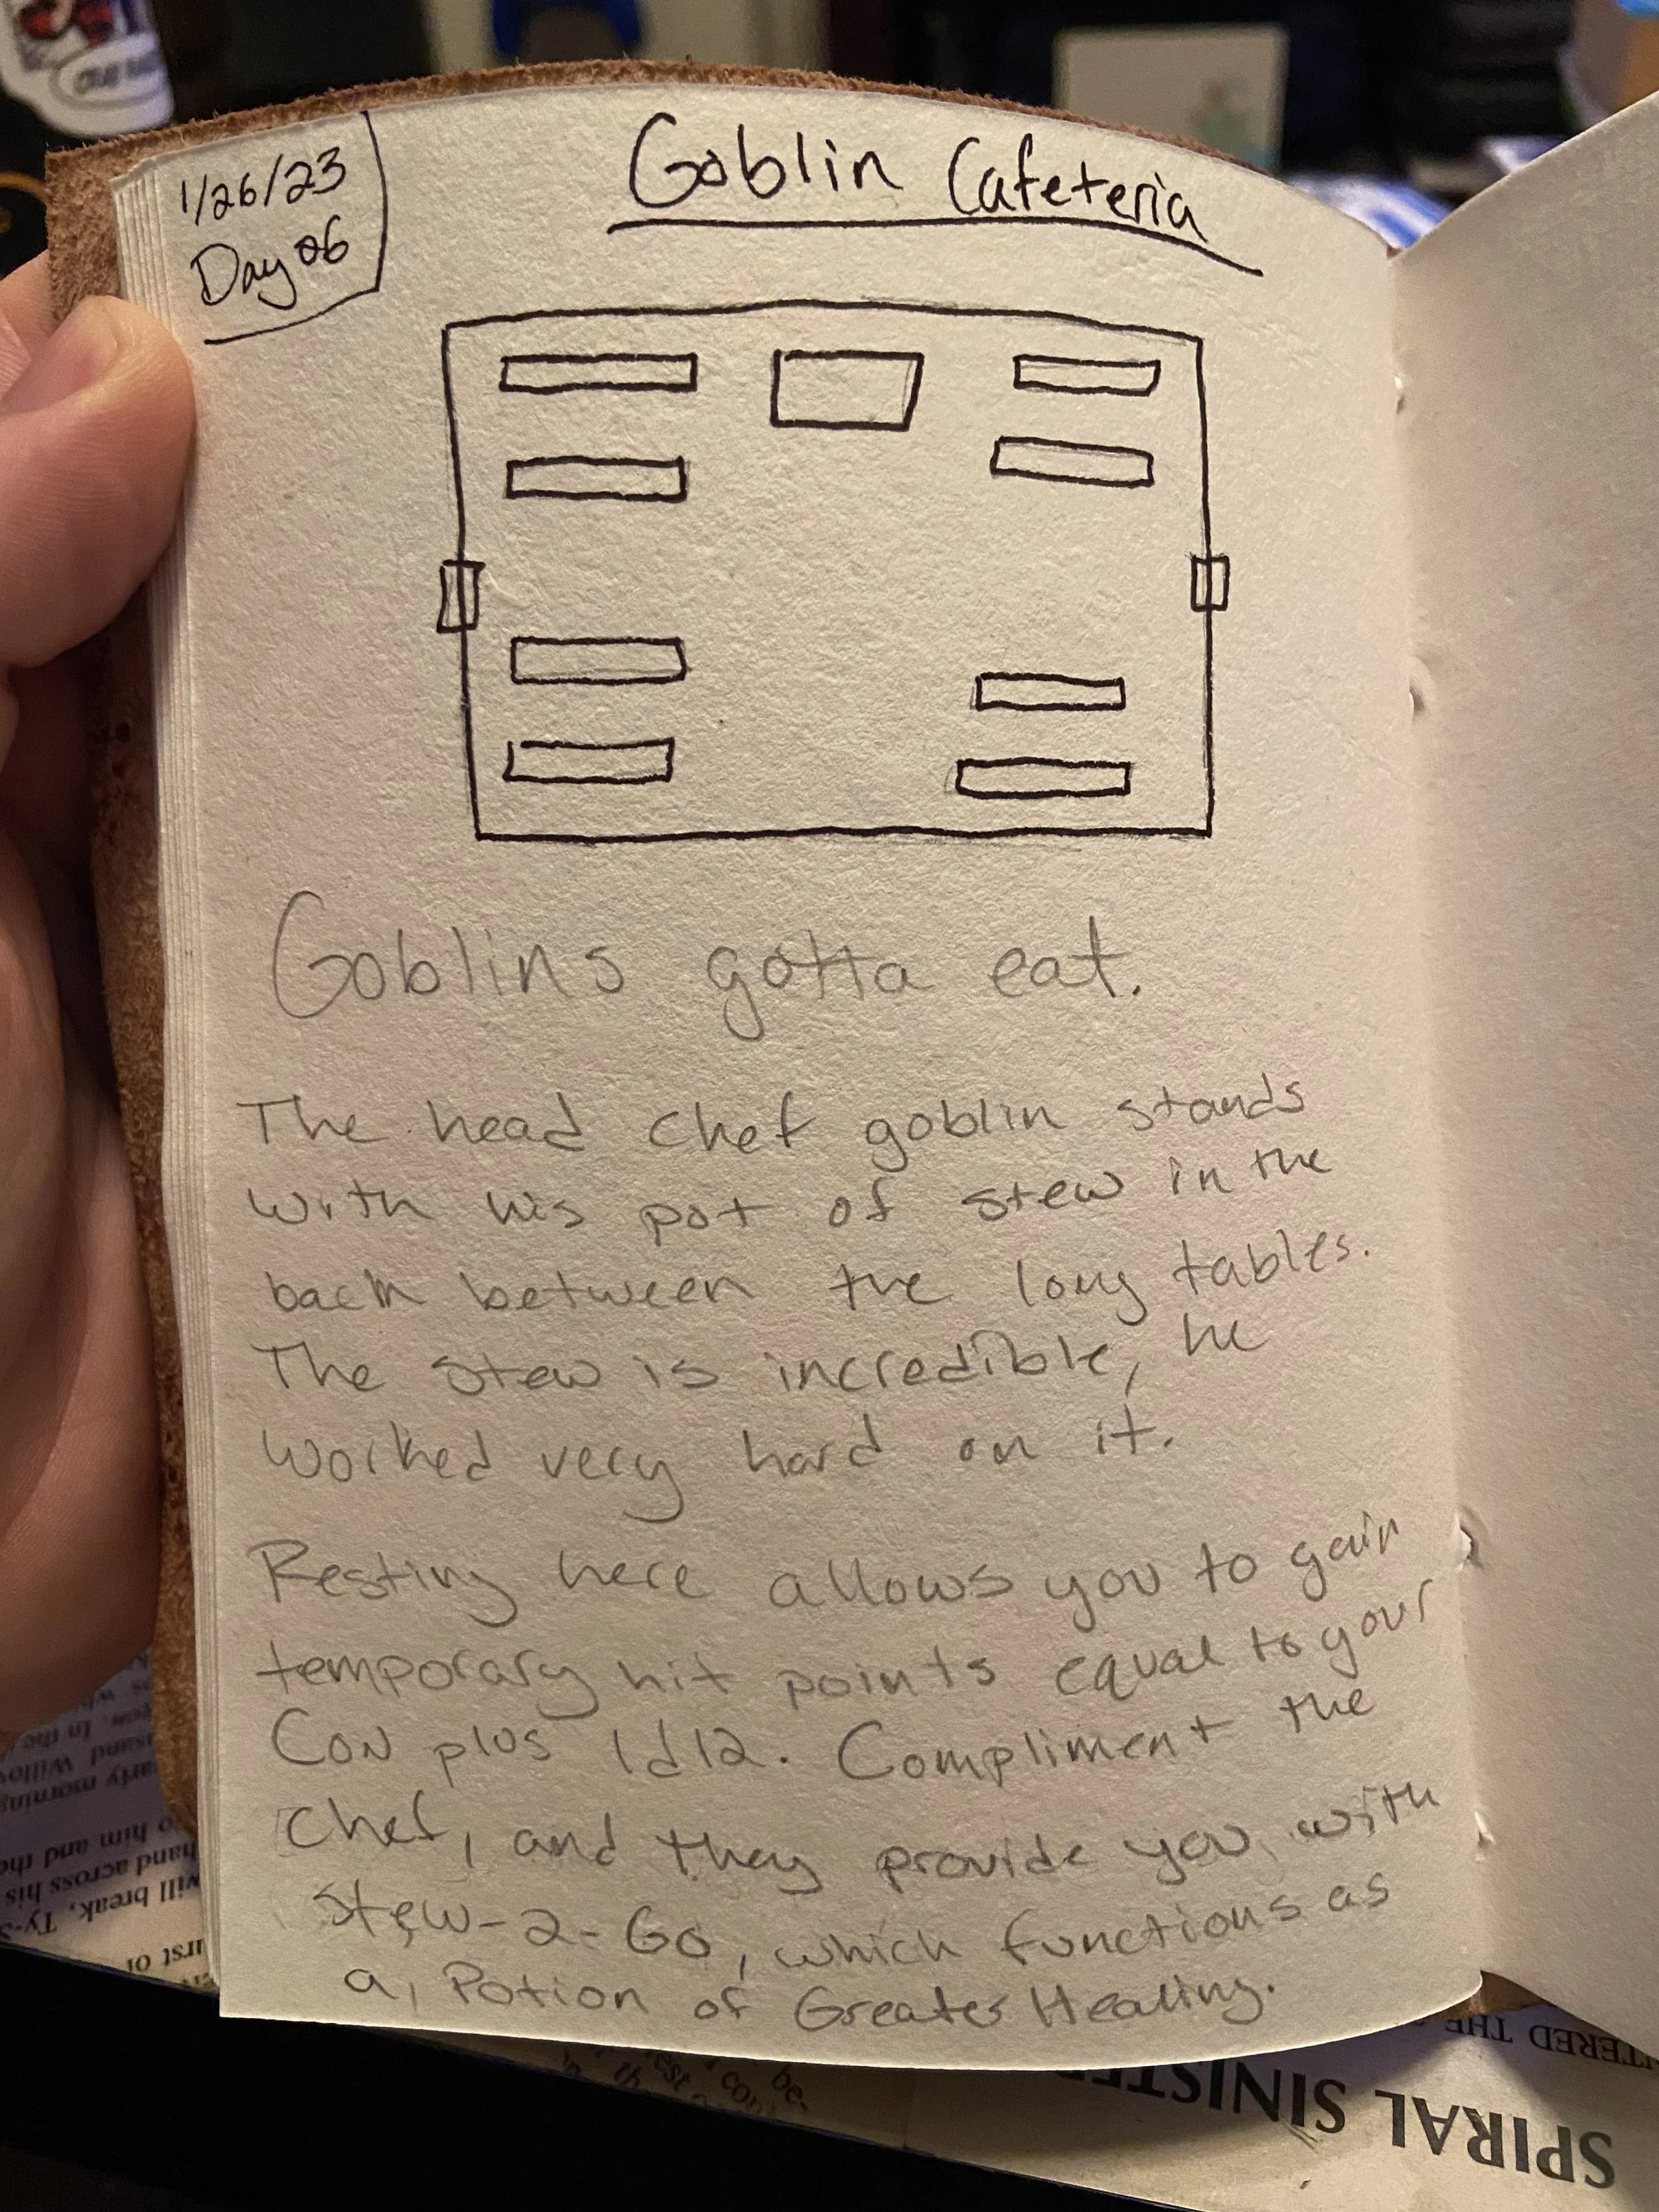 1/26/23
Day 06
Goblin Cafeteria
Goblins gotta eat.
The head chef goblin stands
with his pot of stew in the
back between the long tables.
The stew is incredible, he
worked very hard on it.
Resting here allows you to gain
temporary hit points equal to your
CON plus 1d12. Compliment the
chef, and they provide you with
Stew-2-Go, which functions as
a Potion of Greater Healing.
SPIRAL SINISTE